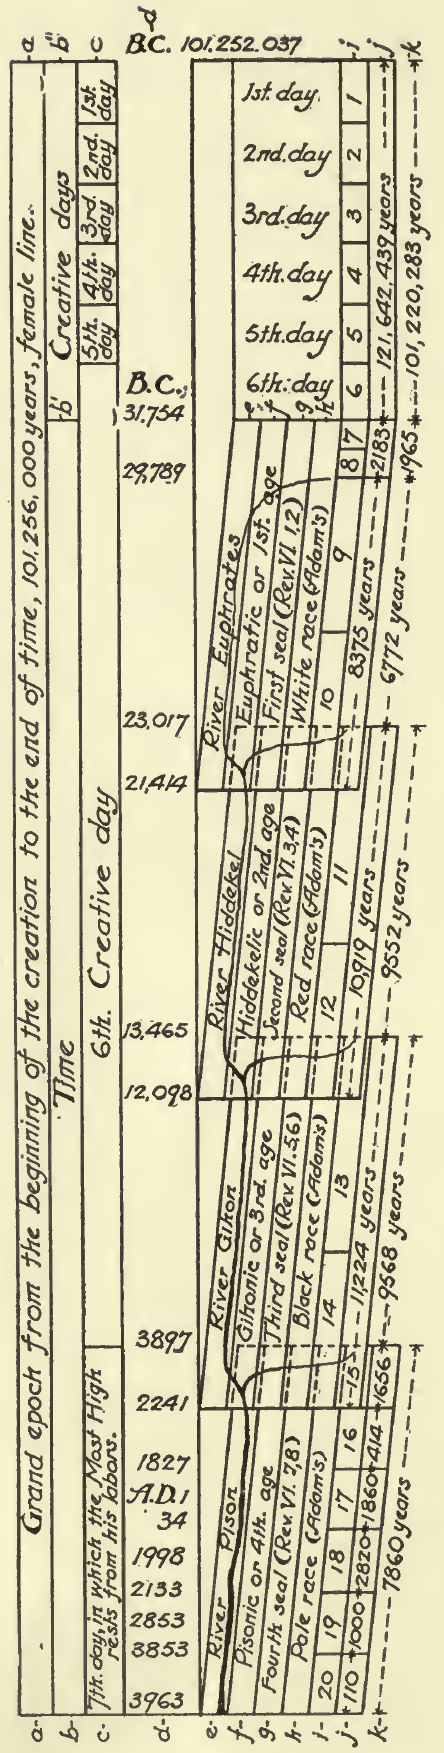 a
Grand epoch from the beginning of the creation to the end of time, 101.256,000 years, female line.
a
b
Time
b'
Creative days
b"
c
7th. day, in which the Most High
rests from his labors.
6th. Creative day
5th. day
4th. day
3rd. day
2nd. day
1st. day
c
d
3963
3853
2853
2133
1998
34
A.D.1
1827
2241
3897
12,098
13,465
21,414
23,017
29,789
31.754
B.C.
B.C. 101.252.037
d
e
River Pison
River Gihon
River Hiddekel
River Euphrates
e
f
Pisonic or 4th. age
Gihonic or 3rd. age
Hiddekelic or 2nd. age
Euphratic or 1st. age
f
g
Fourth seal (Rev. VI. 7,8)
Third seal (Rev. VI. 5,6)
Second seal (Rev. VI. 3,4)
First seal (Rev. VI. 1,2)
g
h
Pale race (Adam's)
Black race (Adam's)
Red race (Adam's)
White race (Adam's)
h
6th. day
5th. day
4th. day
3rd. day
2nd. day
1st. day
i
20 19 18 17 16 15 14 13 12 11 10 9 8 7 6 5 4 3 2 1
i
j
110
1000
2820
1860
414
1656
11,224 years
10,919 years
8375 years
2183
121,642,439 years
j
k
7860 years
9568 years
9552 years
6772 years
1965
101,220,283 years
k